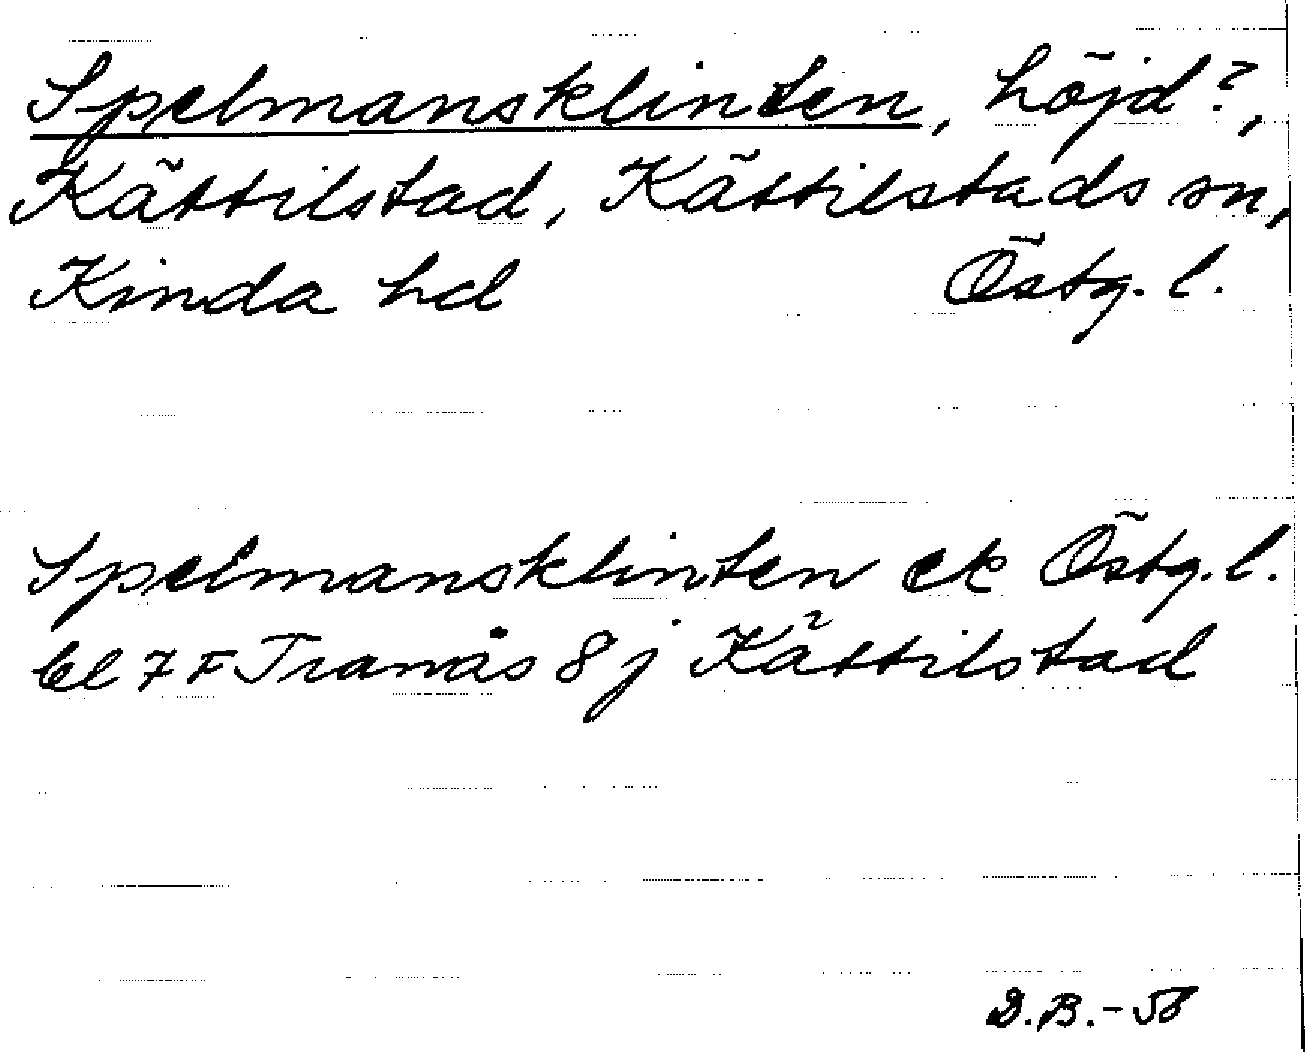 Spelmansklinten, höjd?,
Kättilstad, Kättilstads sn,
Kinda hd Östg. l.
Spelmansklinten ek Östg. l.
bl 7 F Tranås 8 j Kättilstad
D.B.-56